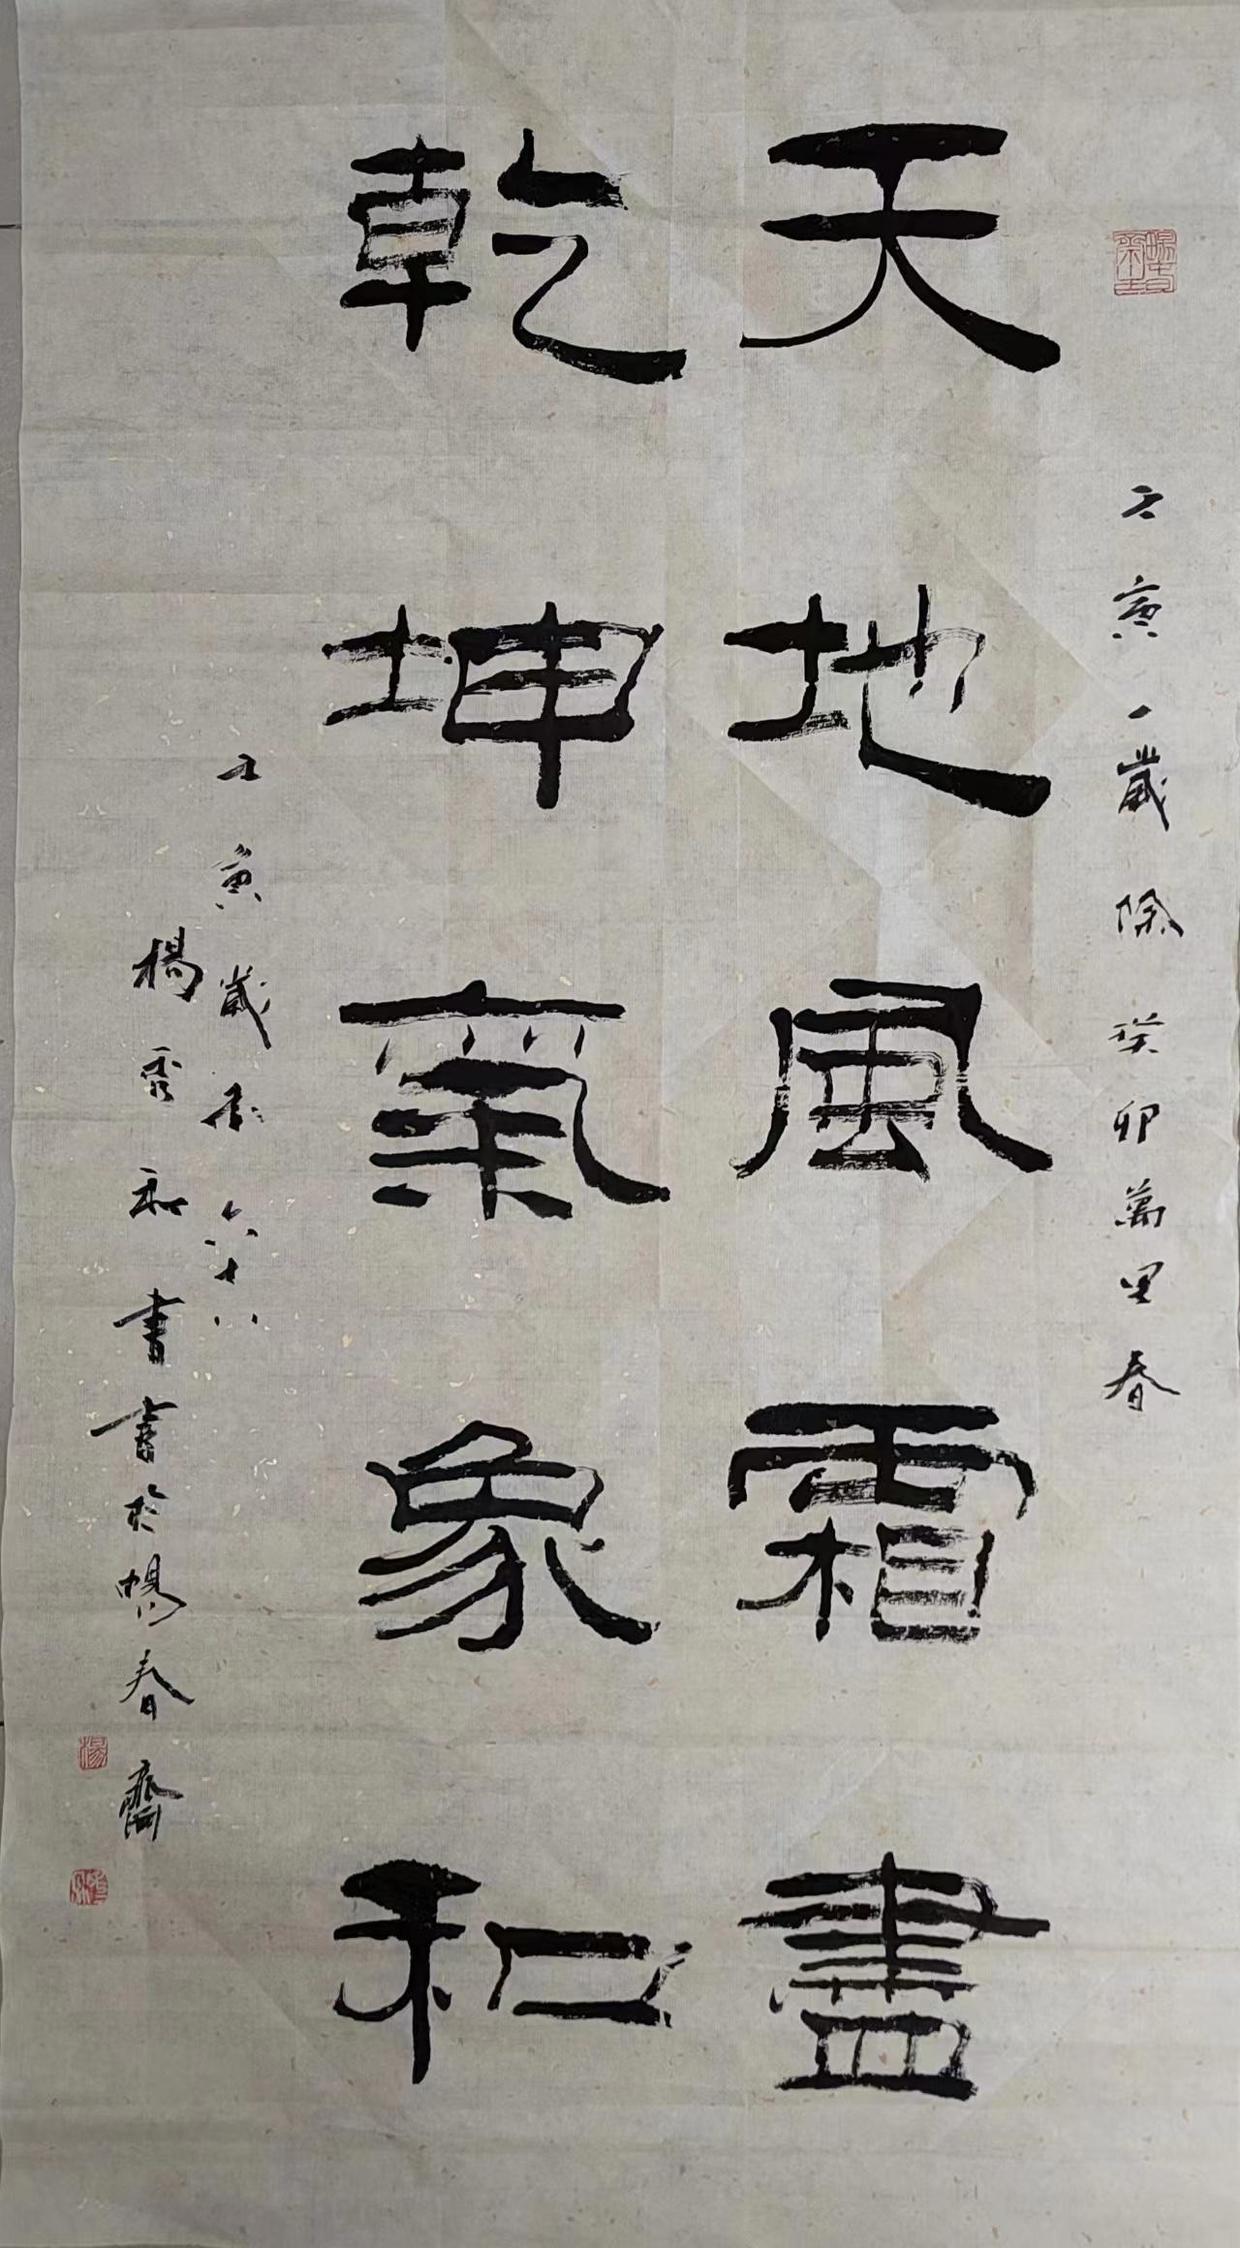 壬寅一歲除癸卯萬里春
天地風霜盡
乾坤氣象和
壬寅歲末六十八
楊秀和書書於暢春齋
楊